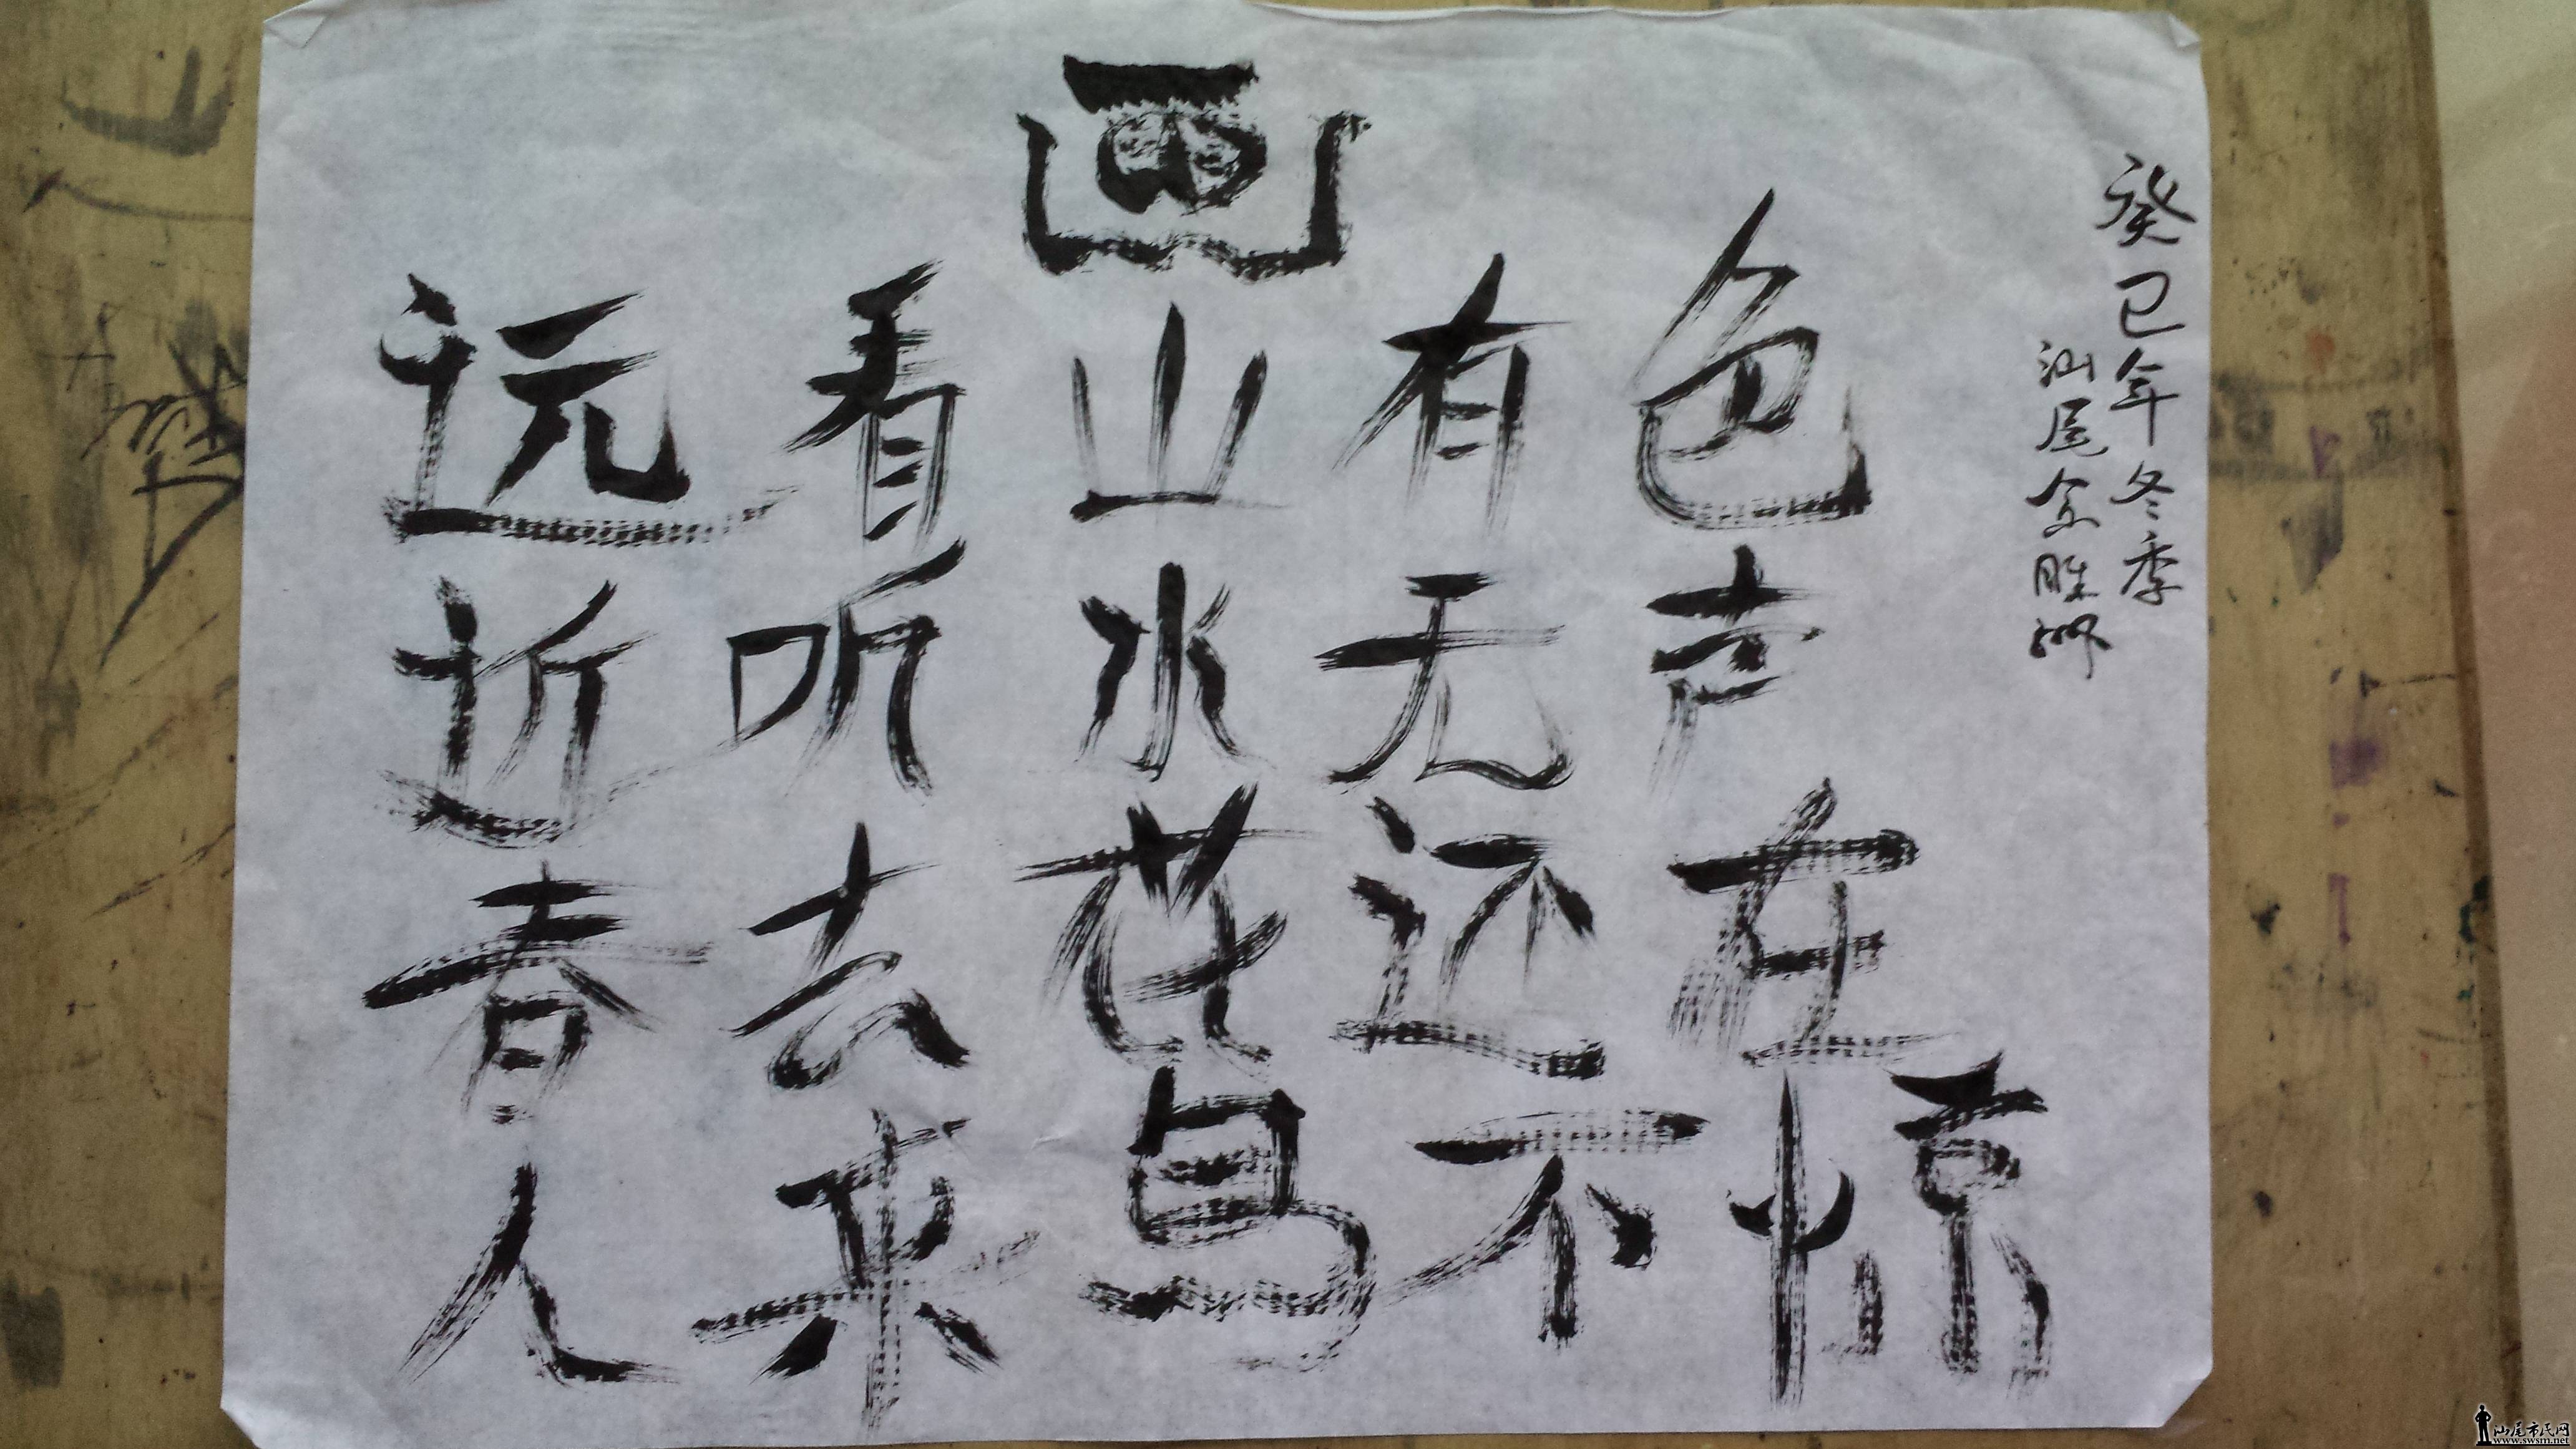 画
远看山有色
近听水无声
春去花还在
人来鸟不惊
癸巳年冬季
汕尾
汕尾市民网
www.swsm.net